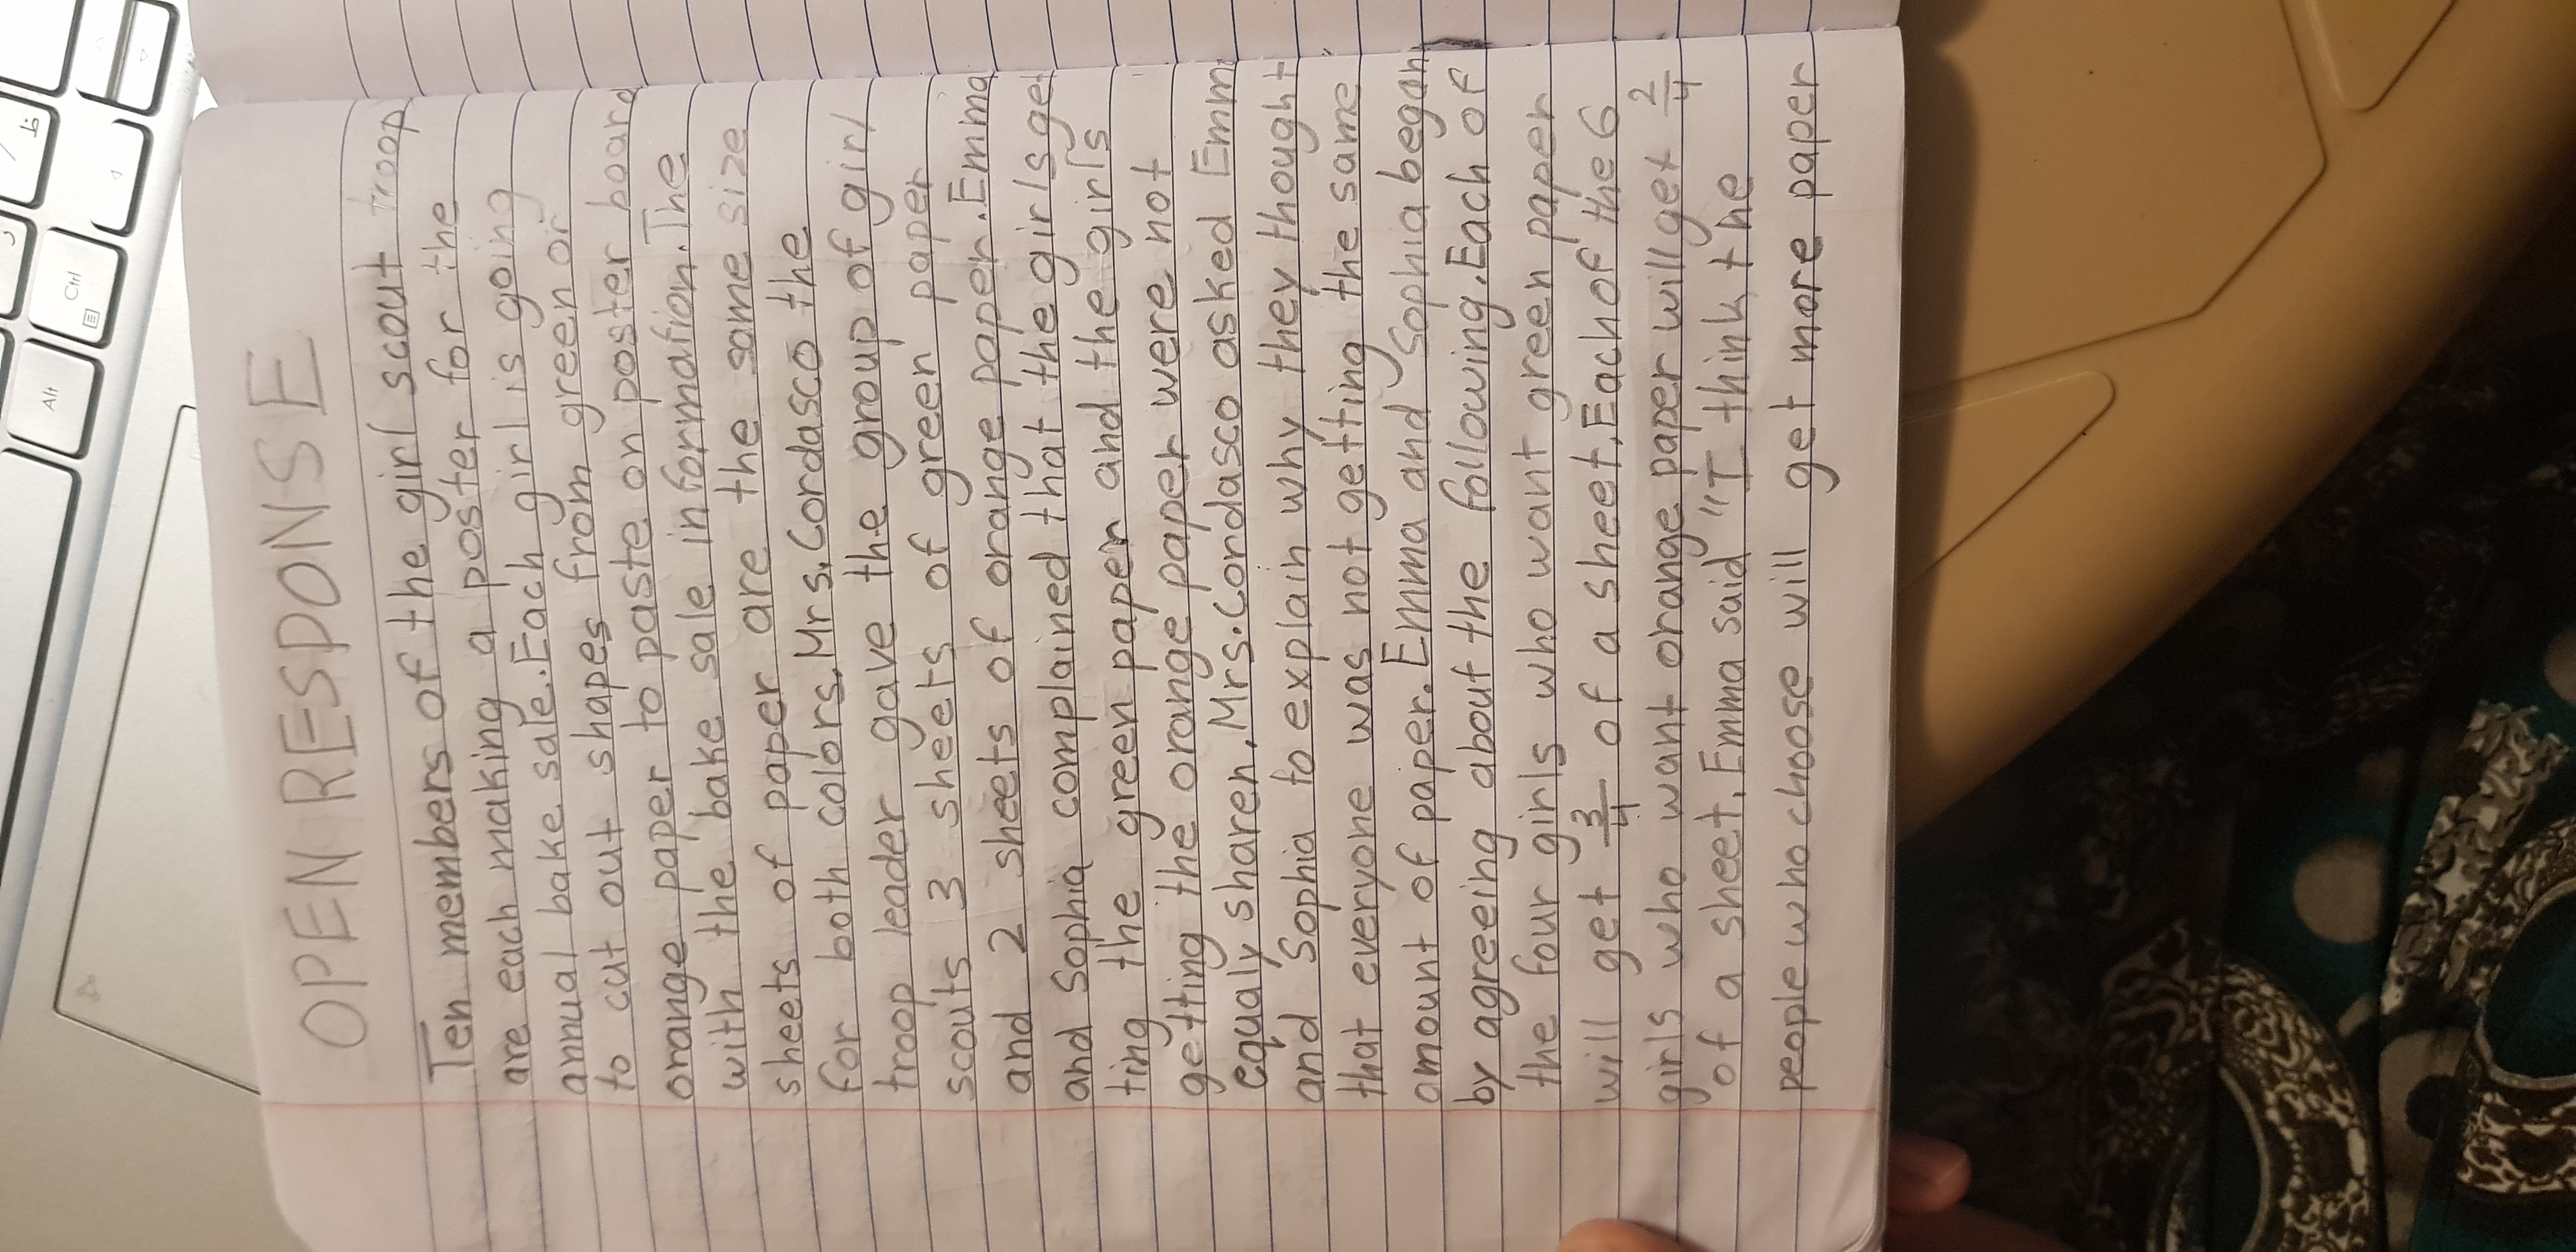 Alt
Ctrl
OPEN RESPONSE
Ten members of the girl scout troop
are each making a poster for the
annual bake sale. Each girl is going
to cut out shapes from green or
orange paper to paste on poster board
with the bake sale information. The
sheets of paper are the same size
for both colors, Mrs. Cordasco the
troop leader gave the group of girl
scouts 3 sheets of green paper
and 2 sheets of orange paper. Emma
and Sophia complained that the girls get
ting the green paper and the girls
getting the orange paper were not
equaly sharen, Mrs. Cordasco asked Emma
and Sophia to explain why they thought
that everyone was not getting the same
amount of paper. Emma and Sophia began
by agreeing about the following. Each of
the four girls who want green paper
will get 3/4 of a sheet, Each of the 6
girls who want orange paper will get 2/4
of a sheet, Emma said "I think the
people who choose will get more paper